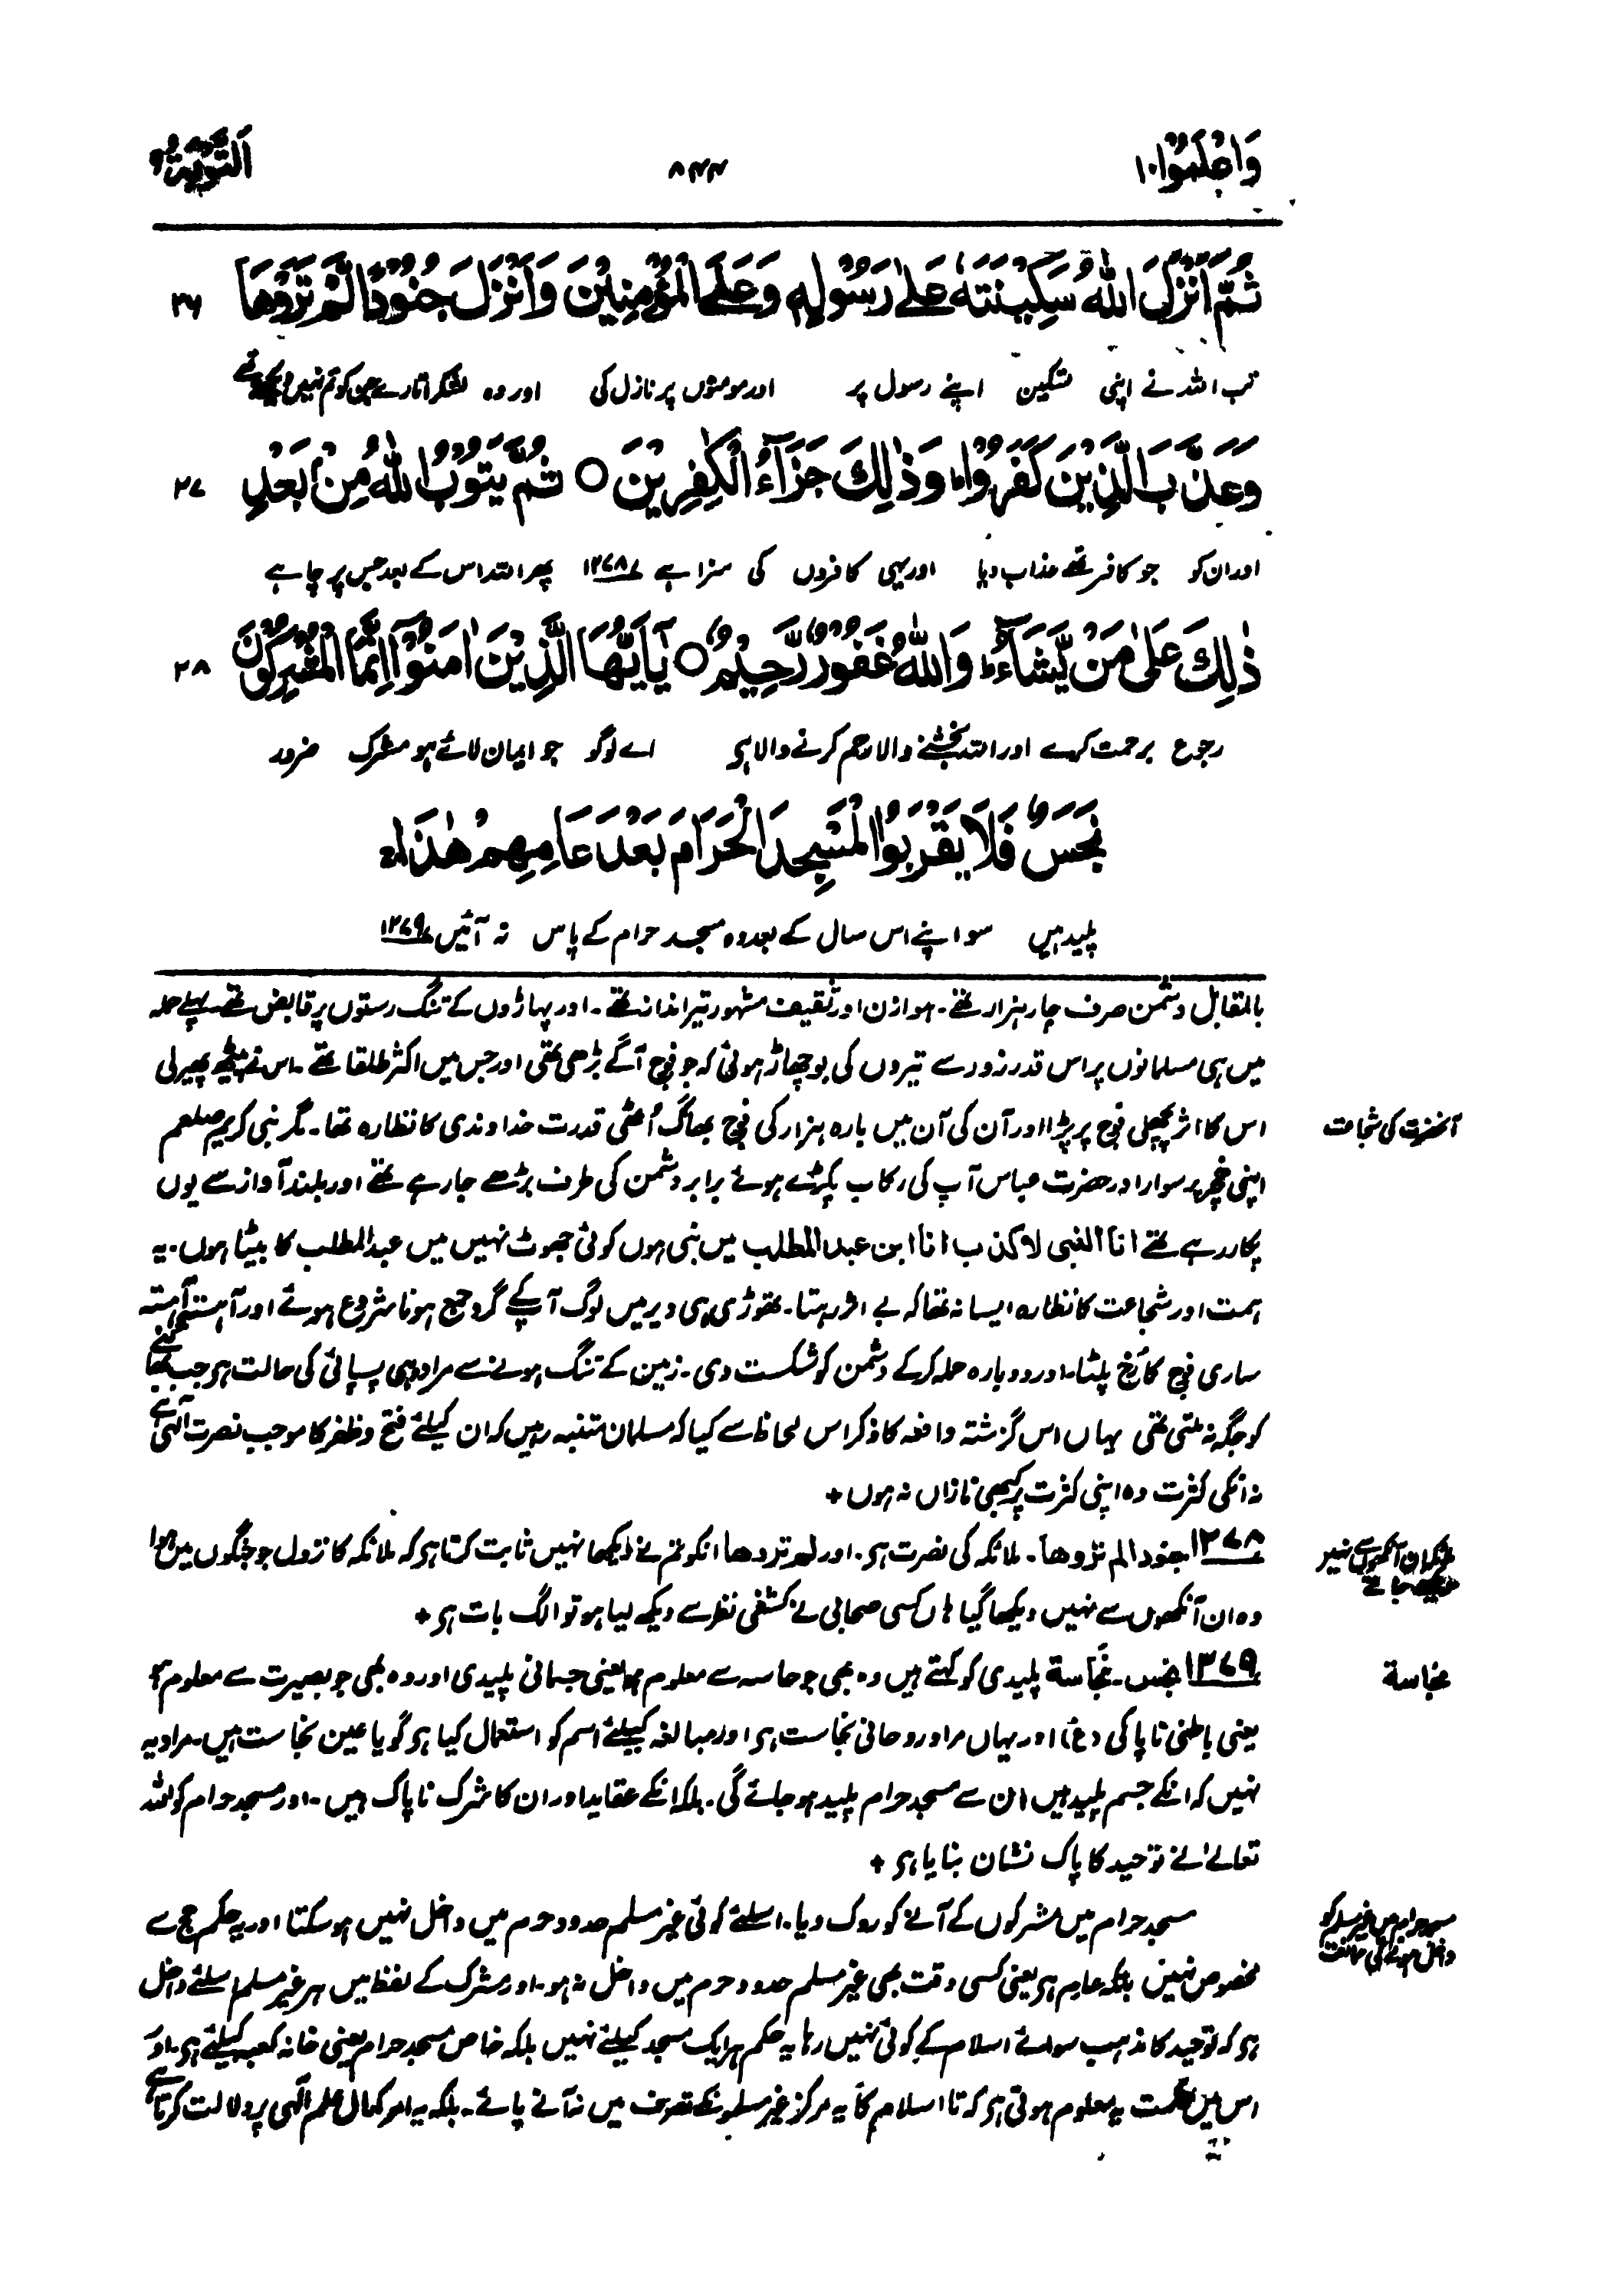 وَاعْلَمُوْا ۱۰
۸۴۴
اَلتَّوْبَةُ ۹
ثُمَّ اَنْزَلَ اللّٰهُ سَكِيْنَتَهٗ عَلٰى رَسُوْلِهٖ وَعَلَى الْمُؤْمِنِيْنَ وَاَنْزَلَ جُنُوْدًا لَّمْ تَرَوْهَا
۲۶
تب اللہ نے اپنی تسکین اپنے رسول پر اور مومنوں پر نازل کی اور وہ لشکر اتارے جن کو تم نہیں دیکھتے تھے
وَعَذَّبَ الَّذِيْنَ كَفَرُوْا ؕ وَذٰلِكَ جَزَآءُ الْكٰفِرِيْنَ ○ ثُمَّ يَتُوْبُ اللّٰهُ مِنْۢ بَعْدِ
۲۷
اور ان کو جو کافر تھے عذاب دیا اور یہی کافروں کی سزا ہے ۱۲۷۸ پھر اللہ اس کے بعد جس پر چاہے
ذٰلِكَ عَلٰى مَنْ يَّشَآءُ ؕ وَاللّٰهُ غَفُوْرٌ رَّحِيْمٌ ○ يٰۤاَيُّهَا الَّذِيْنَ اٰمَنُوْۤا اِنَّمَا الْمُشْرِكُوْنَ
۲۸
رجوع برحمت کرے اور اللہ بخشنے والا رحم کرنے والا ہی اے لوگو جو ایمان لائے ہو مشرک ضرور
نَجَسٌ فَلَا يَقْرَبُوا الْمَسْجِدَ الْحَرَامَ بَعْدَ عَامِهِمْ هٰذَا ۚ
پلید ہیں سو اپنے اس سال کے بعد وہ مسجد حرام کے پاس نہ آئیں ۱۲۷۹
بالمقابل دشمن صرف چار ہزار تھے۔ ہوازن اور ثقیف مشہور تیرانداز تھے۔ اور پہاڑوں کے تنگ رستوں پر قابض تھے۔ پہلے حملہ
میں ہی مسلمانوں پر اس قدر زور سے تیروں کی بوچھاڑ ہوئی کہ جو فوج آگے بڑھی تھی اور جس میں اکثر طلقا تھے۔ اس نے پیٹھ پھیر لی
اس کا اثر پچھلی فوج پر پڑا اور آن کی آن میں بارہ ہزار کی فوج بھاگ اُٹھی قدرت خداوندی کا نظارہ تھا۔ مگر نبی کریم صلعم
آنحضرت کی شجاعت
اپنی خچر پر سوار اور حضرت عباس آپ کی رکاب پکڑے ہوئے برابر دشمن کی طرف بڑھے جا رہے تھے اور بلند آواز سے یوں
پکار رہے تھے انا النبی لا کذب انا ابن عبد المطلب میں نبی ہوں کوئی جھوٹ نہیں میں عبد المطلب کا بیٹا ہوں۔ یہ
ہمت اور شجاعت کا نظارہ ایسا نہ تھا کہ بے اثر رہتا۔ تھوڑی ہی دیر میں لوگ آپ کے گرد جمع ہونا شروع ہوئے اور آہستہ آہستہ
ساری فوج کا رُخ پلٹا۔ اور دوبارہ حملہ کر کے دشمن کو شکست دی۔ زمین کے تنگ ہونے سے مراد وہی پسپائی کی حالت ہی جب بھاگنے
کو جگہ نہ ملتی تھی یہاں اس گزشتہ واقعہ کا ذکر اس لحاظ سے کیا کہ مسلمان متنبہ رہیں کہ ان کیلئے فتح و ظفر کا موجب نصرت الٰہی ہے
نہ انکی کثرت وہ اپنی کثرت پر کبھی نازاں نہ ہوں +
۱۲۷۸ جنودا لم تروھا۔ ملائکہ کی نصرت ہی۔ اور لم تروھا انکو تم نے دیکھا نہیں ثابت کرتا ہی کہ ملائکہ کا نزول جو جنگوں میں ہوا
وہ ان آنکھوں سے نہیں دیکھا گیا ہاں کسی صحابی نے کشفی نظر سے دیکھ لیا ہو تو الگ بات ہی +
۱۲۷۹ نجس۔ نجاسة پلیدی کو کہتے ہیں وہ بھی جو حاسہ سے معلوم ہو یعنی جسمانی پلیدی اور وہ بھی جو بصیرت سے معلوم ہو
نجاسة
یعنی باطنی ناپاکی (غ) اور یہاں مراد روحانی نجاست ہی اور مبالغہ کیلئے اسم کو استعمال کیا ہی گویا عین نجاست ہیں۔ مراد یہ
نہیں کہ انکے جسم پلید ہیں ان سے مسجد حرام پلید ہو جائے گی۔ بلکہ انکے عقاید اور ان کا شرک ناپاک ہیں۔ اور مسجد حرام کو اللہ
تعالےٰ نے توحید کا پاک نشان بنایا ہی +
مسجد حرام میں مشرکوں کے آنے کو روک دیا۔ اسلئے کوئی غیر مسلم حدود حرم میں داخل نہیں ہو سکتا اور یہ حکم حج سے
مسجد حرام میں غیر مسلم کو
داخل ہونے کی ممانعت
مخصوص نہیں بلکہ عام ہی یعنی کسی وقت بھی غیر مسلم حدود حرم میں داخل نہ ہو۔ اور مشرک کے لفظ میں ہر غیر مسلم اسلئے داخل
ہی کہ توحید کا مذہب سوائے اسلام کے کوئی نہیں رہا یہ حکم ہر ایک مسجد کیلئے نہیں بلکہ خاص مسجد حرام یعنی خانہ کعبہ کیلئے ہی۔ اور
اس میں حکمت یہ معلوم ہوتی ہی کہ تا اسلام کا یہ مرکز غیر مسلمونکے تصرف میں نہ آنے پائے۔ بلکہ یہ امر کمال علم الٰہی پر دلالت کرتا ہے